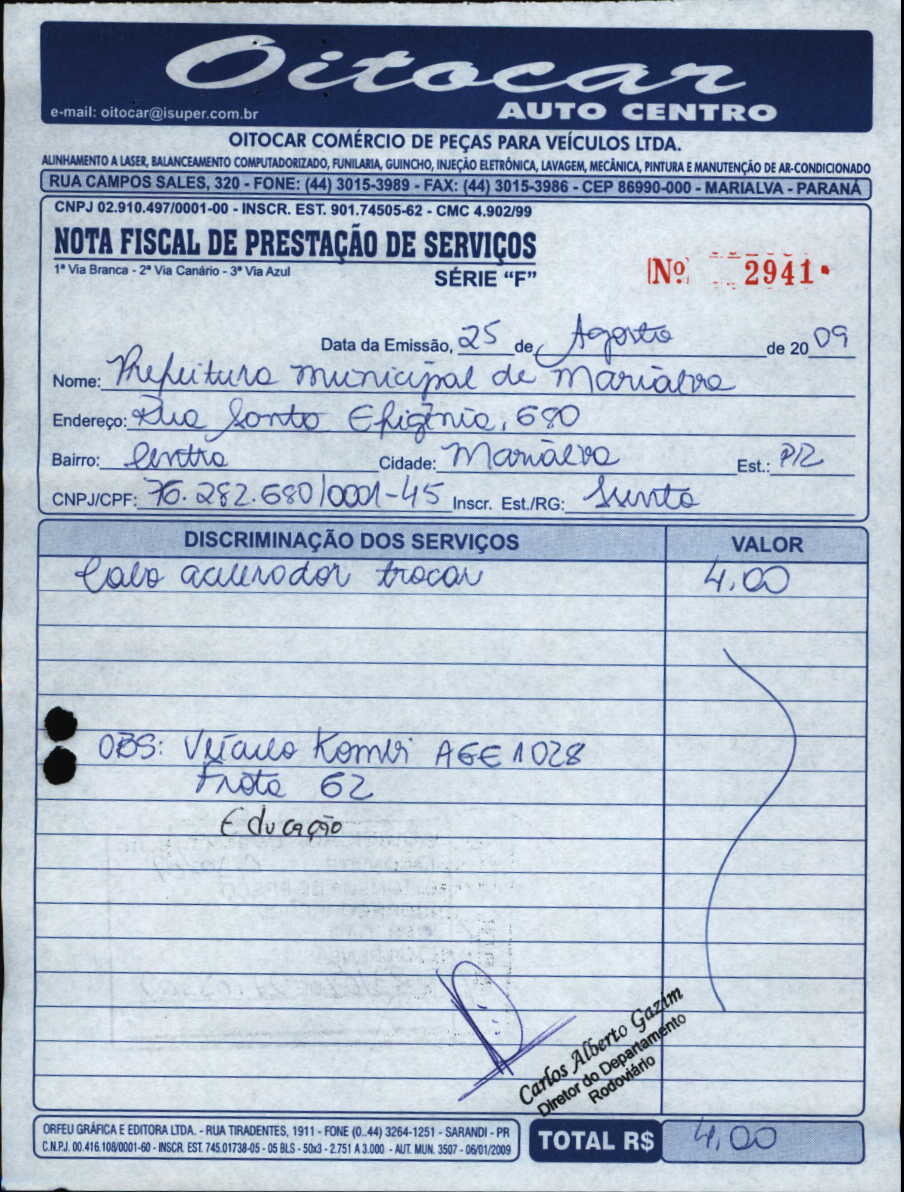 Oitocar
e-mail: oitocar@isuper.com.br
AUTO CENTRO
OITOCAR COMÉRCIO DE PEÇAS PARA VEÍCULOS LTDA.
ALINHAMENTO A LASER, BALANCEAMENTO COMPUTADORIZADO, FUNILARIA, GUINCHO, INJEÇÃO ELETRÔNICA, LAVAGEM, MECÂNICA, PINTURA E MANUTENÇÃO DE AR-CONDICIONADO
RUA CAMPOS SALES, 320 - FONE: (44) 3015-3989 - FAX: (44) 3015-3986 - CEP 86990-000 - MARIALVA - PARANÁ
CNPJ 02.910.497/0001-00 - INSCR. EST. 901.74505-62 - CMC 4.902/99
NOTA FISCAL DE PRESTAÇÃO DE SERVIÇOS
1ª Via Branca - 2ª Via Canário - 3ª Via Azul
SÉRIE "F"
Nº 2941
Data da Emissão, 25 de Agosto de 2009
Nome: Prefeitura municipal de Marialva
Endereço: Rua Santa Efigênia, 680
Bairro: Centro Cidade: Marialva Est.: PR
CNPJ/CPF: 76.282.680/0001-45 Inscr. Est./RG: Isento
DISCRIMINAÇÃO DOS SERVIÇOS VALOR
Cabo acelerador trocar 4,00
OBS: Veículo Kombi AGE 1028
Frota 62
Educação
Carlos Alberto Gazim
Diretor do Departamento
Rodoviário
ORFEU GRÁFICA E EDITORA LTDA. - RUA TIRADENTES, 1911 - FONE (0..44) 3264-1251 - SARANDI - PR
C.N.P.J. 00.416.108/0001-60 - INSCR. EST. 745.01738-05 - 05 BLS - 50x3 - 2.751 A 3.000 - AUT. MUN. 3507 - 06/01/2009
TOTAL R$ 4,00